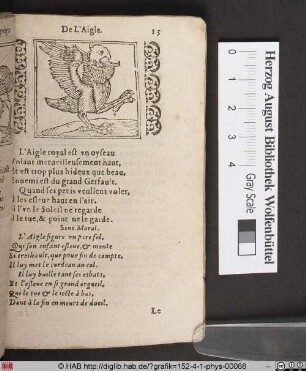 De L'Aigle. 13
L'Aigle royal est vn oyseau
merueilleusement haut,
Et est trop plus hideux que beau,
Ennemi est du grand Gerfaut.
Quand ses petis veullent voler,
Il les esleue haut en l'air.
Si l'vn le Soleil ne regarde
Il le tue, & point ne le garde.
Sens Moral.
L'Aigle figure vn
Qui son enfant esleue, & monte
Si treshault, que pour fin de compte,
Il luy met le cordeau au col.
Il luy baille tant ses esbats,
Et l'esleue en si grand orgueil,
Que le tue & le iecte à bas,
Dont à la fin en meurt de dueil.
Le
0 1 2 3 4
Gray Scale
Herzog August Bibliothek Wolfenbüttel
© HAB http://diglib.hab.de/?grafik=152-4-1-phys-00068